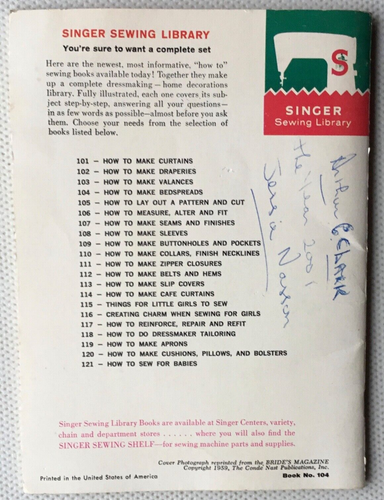 SINGER SEWING LIBRARY
You're sure to want a complete set
Here are the newest, most informative, "how to"
sewing books available today! Together they make
up a complete dressmaking — home decorations
library. Fully illustrated, each one covers its sub-
ject step-by-step, answering all your questions—
in as few words as possible—almost before you ask
them. Choose your needs from the selection of
books listed below.
S
SINGER
Sewing Library
101 — HOW TO MAKE CURTAINS
102 — HOW TO MAKE DRAPERIES
103 — HOW TO MAKE VALANCES
104 — HOW TO MAKE BEDSPREADS
105 — HOW TO LAY OUT A PATTERN AND CUT
106 — HOW TO MEASURE, ALTER AND FIT
107 — HOW TO MAKE SEAMS AND FINISHES
108 — HOW TO MAKE SLEEVES
109 — HOW TO MAKE BUTTONHOLES AND POCKETS
110 — HOW TO MAKE COLLARS, FINISH NECKLINES
111 — HOW TO MAKE ZIPPER CLOSURES
112 — HOW TO MAKE BELTS AND HEMS
113 — HOW TO MAKE SLIP COVERS
114 — HOW TO MAKE CAFE CURTAINS
115 — THINGS FOR LITTLE GIRLS TO SEW
116 — CREATING CHARM WHEN SEWING FOR GIRLS
117 — HOW TO REINFORCE, REPAIR AND REFIT
118 — HOW TO DO DRESSMAKER TAILORING
119 — HOW TO MAKE APRONS
120 — HOW TO MAKE CUSHIONS, PILLOWS, AND BOLSTERS
121 — HOW TO SEW FOR BABIES
Arthur C. CLARK
the year 2001
Jessica
Singer Sewing Library Books are available at Singer Centers, variety,
chain and department stores ...... where you will also find the
SINGER SEWING SHELF—for sewing machine parts and supplies.
Cover Photograph reprinted from the BRIDE'S MAGAZINE
Copyright 1959, The Conde Nast Publications, Inc.
Printed in the United States of America
Book No. 104